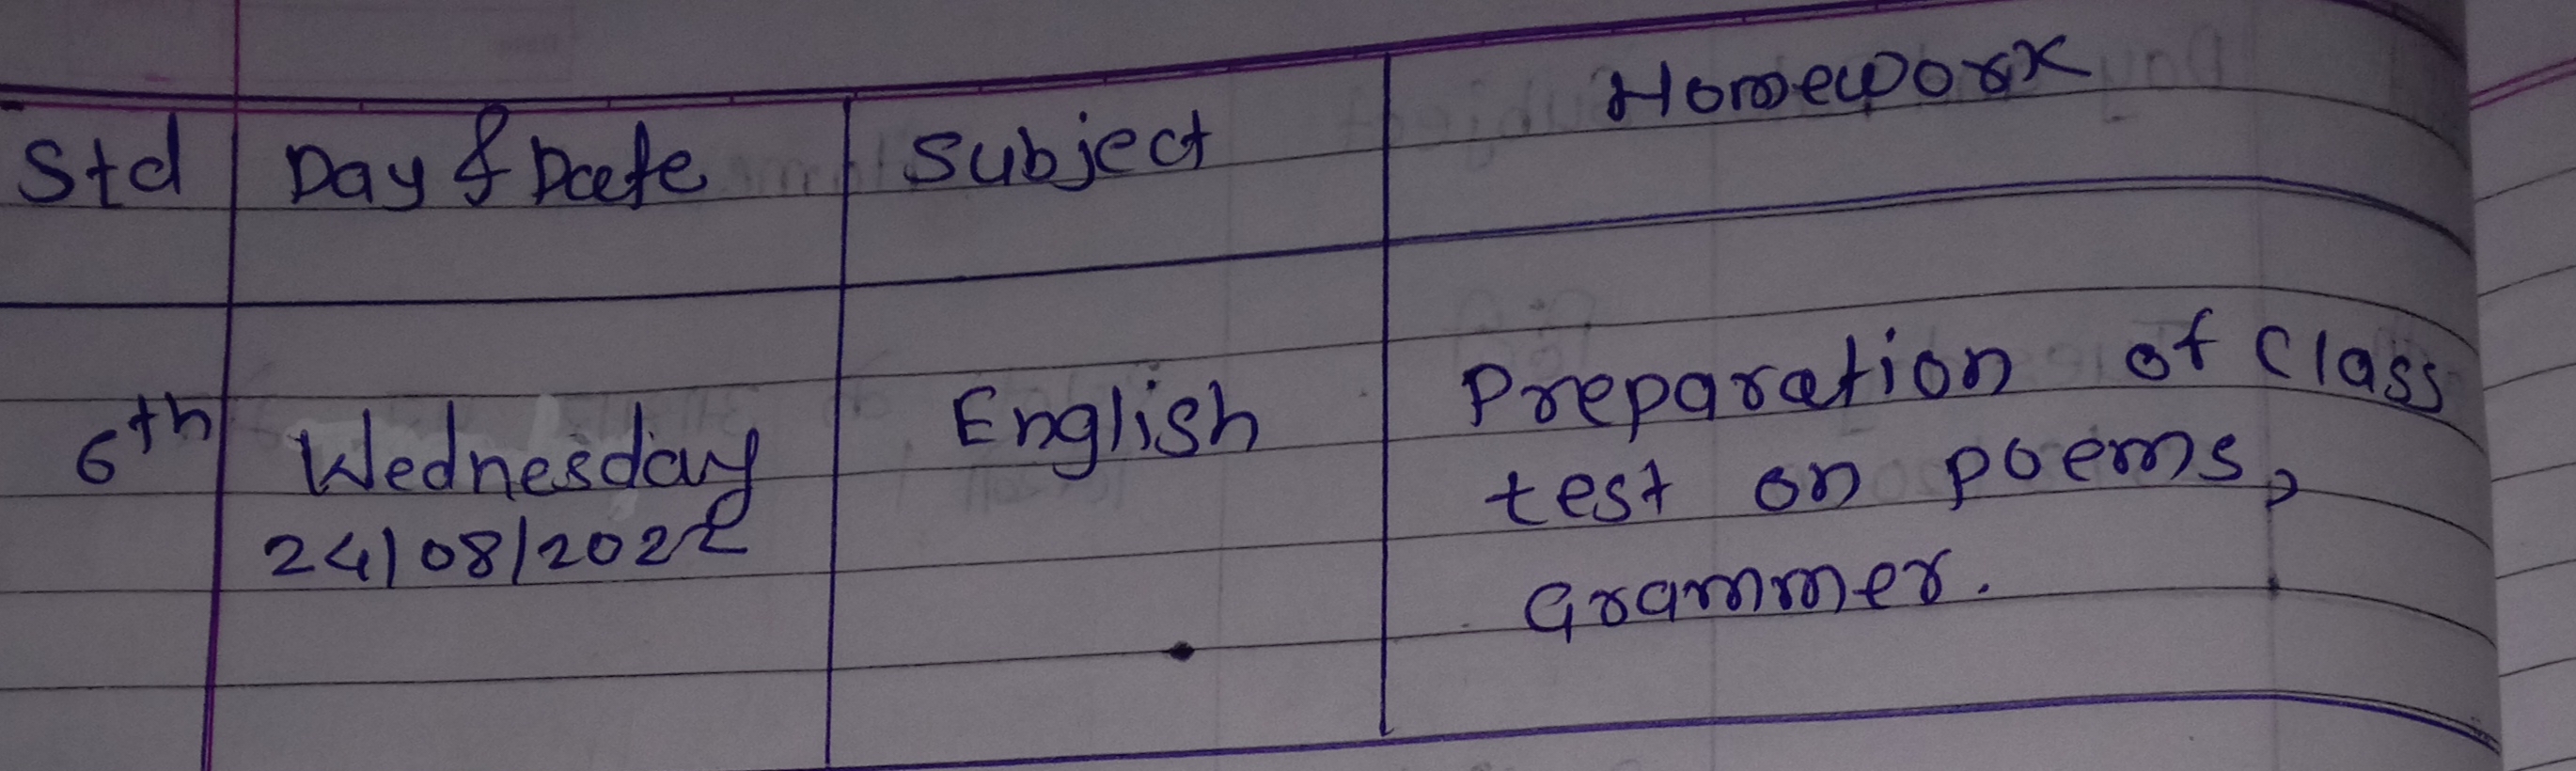 Std Day & Date Subject Homework
6th Wednesday English Preparation of class
24/08/2022 test on poems,
Grammer.